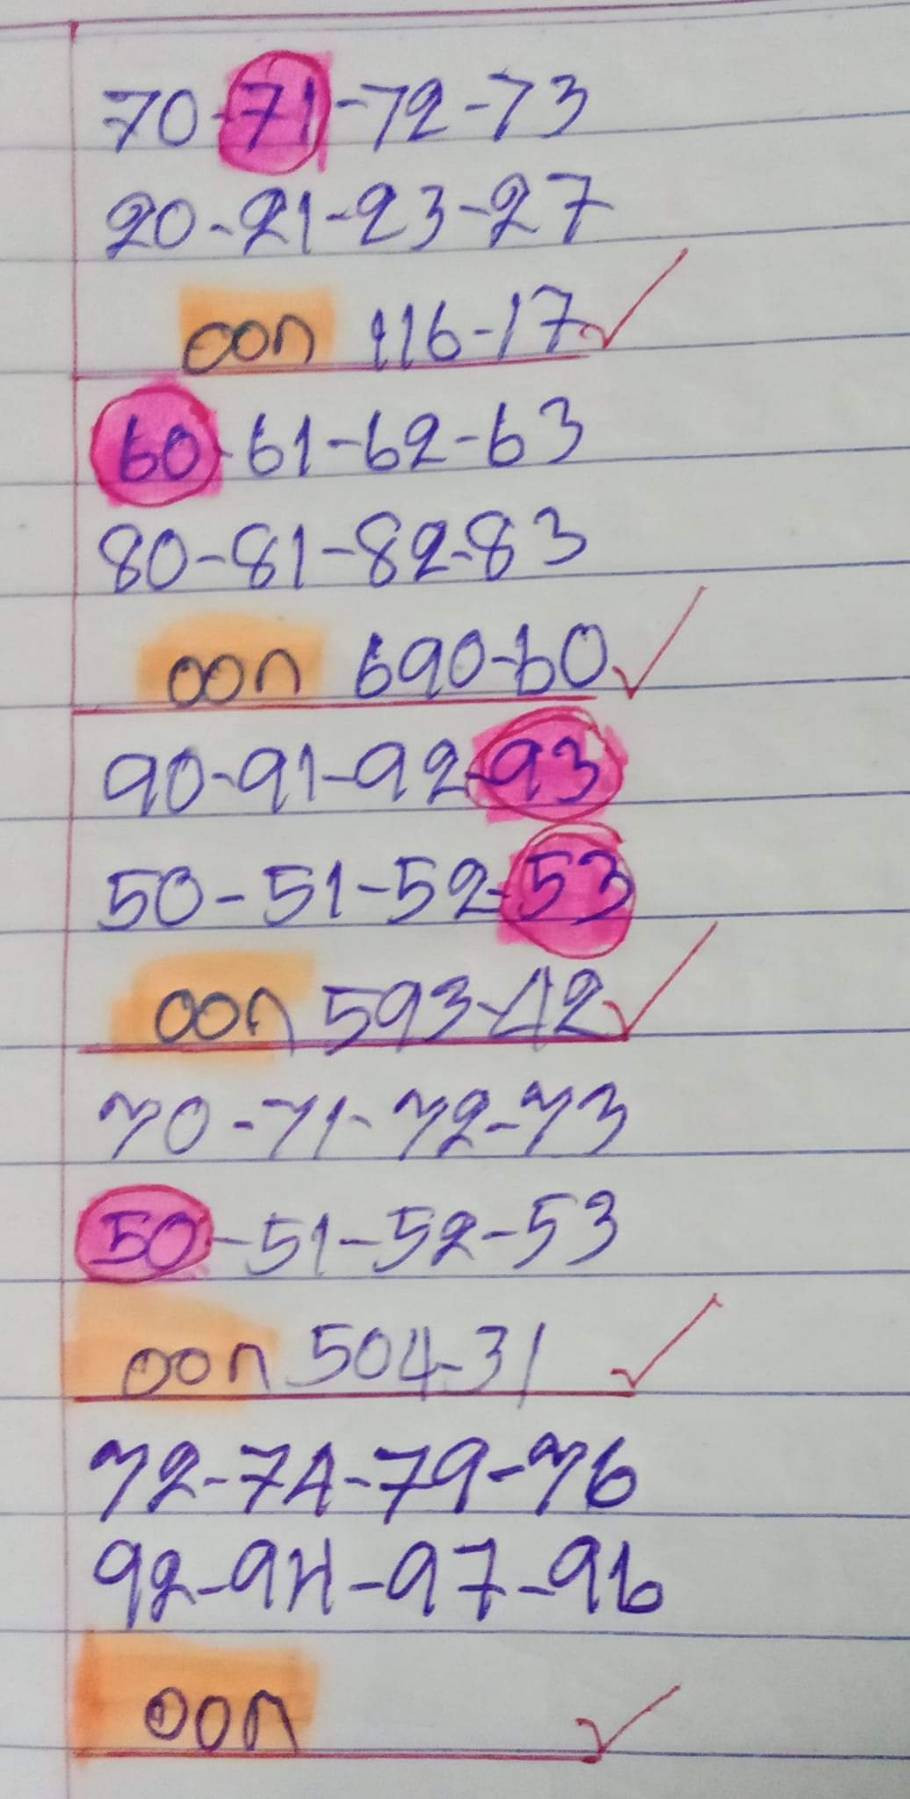 70-71-72-73
20-21-23-27
ออก 116-17
60-61-62-63
80-81-82-83
ออก 690-60
90-91-92-93
50-51-52-53
ออก 593-42
70-71-72-73
50-51-52-53
ออก 504-31
72-74-79-76
92-94-97-96
ออก